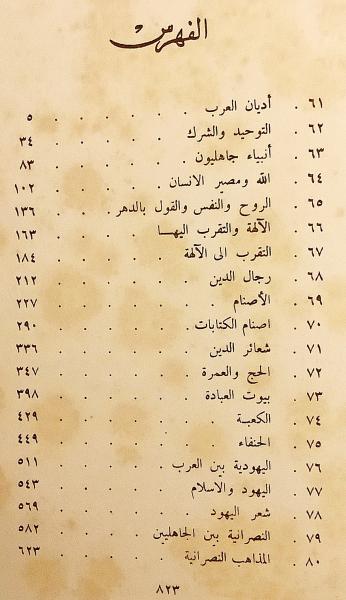 الفهرس
٦١ . أديان العرب . . . . . . ٥
٦٢ . التوحيد والشرك . . . . . . ٣٤
٦٣ . أنبياء جاهليون . . . . . . ٨٣
٦٤ . الله ومصير الانسان . . . . . . ١٠٢
٦٥ . الروح والنفس والقول بالدهر . . . . ١٣٦
٦٦ . الآلهة والتقرب اليها . . . . . ١٦٣
٦٧ . التقرب الى الآلهة . . . . . ١٨٤
٦٨ . رجال الدين . . . . . . ٢١٢
٦٩ . الأصنام . . . . . . ٢٢٧
٧٠ . اصنام الكتابات . . . . . . ٢٩٠
٧١ . شعائر الدين . . . . . . ٣٣٦
٧٢ . الحج والعمرة . . . . . . ٣٤٧
٧٣ . بيوت العبادة . . . . . . ٣٩٨
٧٤ . الكعبة . . . . . . ٤٢٩
٧٥ . الحنفاء . . . . . . ٤٤٩
٧٦ . اليهودية بين العرب . . . . . ٥١١
٧٧ . اليهود والاسلام . . . . . ٥٤٣
٧٨ . شعر اليهود . . . . . . ٥٦٩
٧٩ . النصرانية بين الجاهليين . . . . ٥٨٢
٨٠ . المذاهب النصرانية . . . . . ٦٢٣
٨٢٣